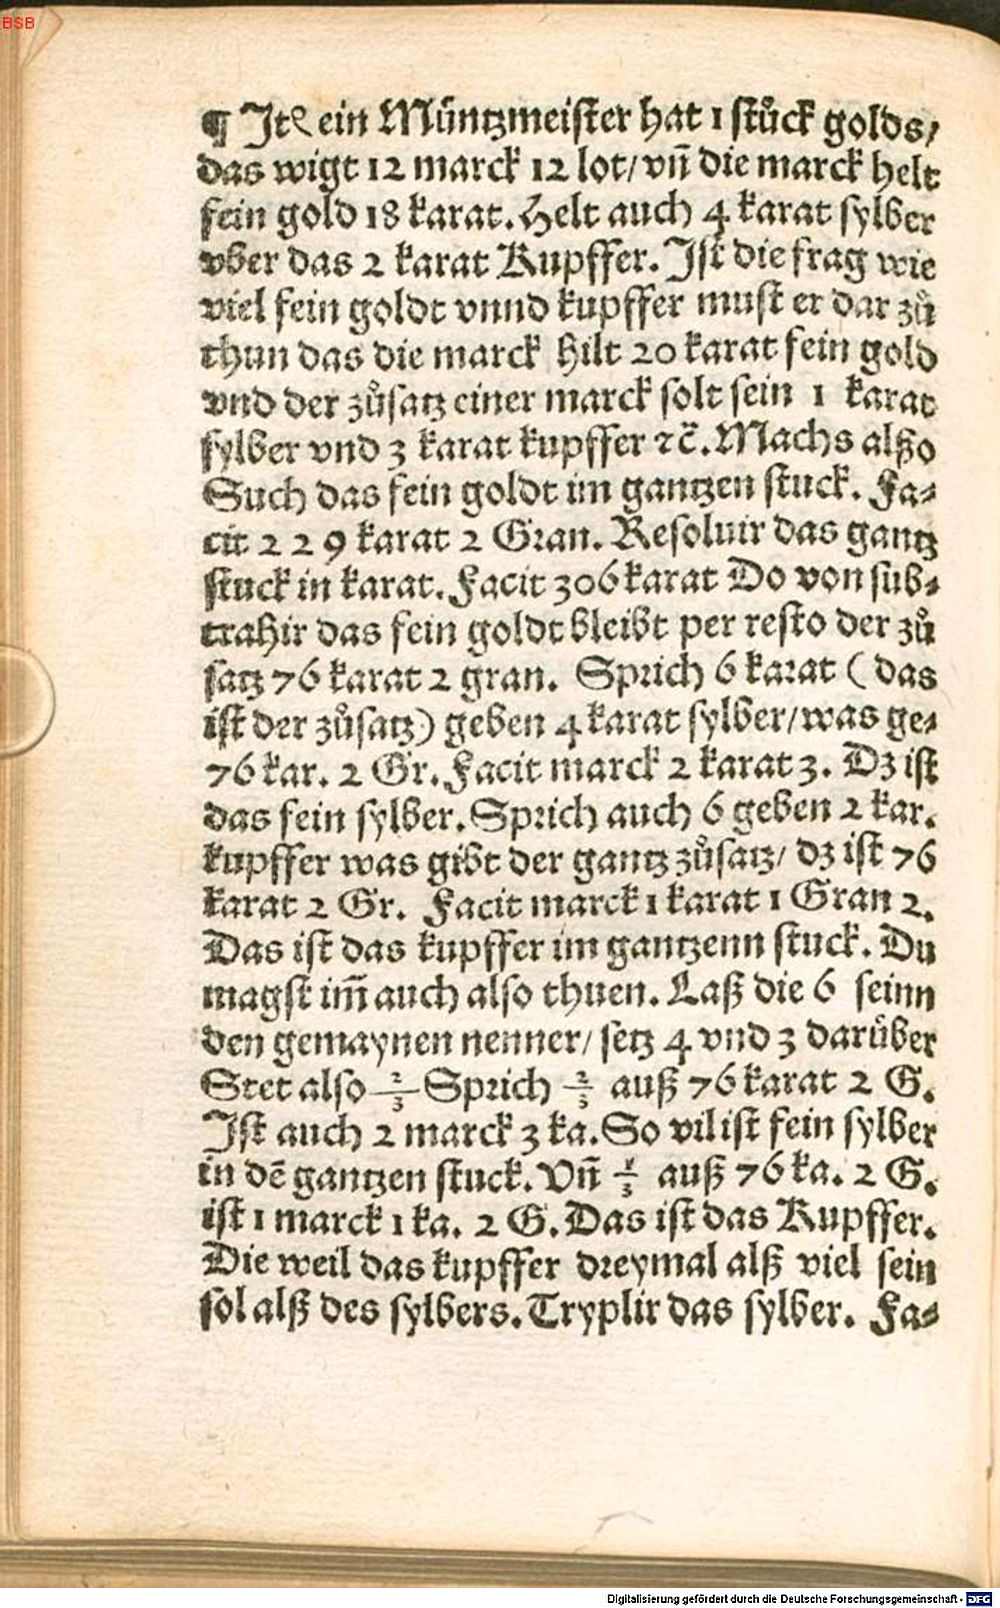 BSB
¶ Jtꝭ ein Müntzmeister hat 1 stůck golds/
das wigt 12 marck 12 lot/ vñ die marck helt
fein gold 18 karat. Helt auch 4 karat sylber
vber das 2 karat Kupffer. Jst die frag wie
viel fein goldt vnnd kupffer must er dar zů
thun das die marck hilt 20 karat fein gold
vnd der zůsatz einer marck solt sein 1 karat
sylber vnd 3 karat kupffer ⁊c̄. Machs alßo
Such das fein goldt im gantzen stuck. Fa⸗
cit 229 karat 2 Gran. Resoluir das gantz
stuck in karat. Facit 306 karat Do von sub⸗
trahir das fein goldt bleibt per resto der zů
satz 76 karat 2 gran. Sprich 6 karat ( das
ist der zůsatz) geben 4 karat sylber/ was ge⸗
76 kar. 2 Gr. Facit marck 2 karat 3. Dz ist
das fein sylber. Sprich auch 6 geben 2 kar.
kupffer was gibt der gantz zůsatz/ dz ist 76
karat 2 Gr. Facit marck 1 karat 1 Gran 2.
Das ist das kupffer im gantzenn stuck. Du
magst im̃ auch also thuen. Laß die 6 seinn
den gemaynen nenner/ setz 4 vnd 3 darüber
Stet also 2/3 Sprich 2/3 auß 76 karat 2 G.
Jst auch 2 marck 3 ka. So vil ist fein sylber
in dē gantzen stuck. Vñ 1/3 auß 76 ka. 2 G.
ist 1 marck 1 ka. 2 G. Das ist das Kupffer.
Die weil das kupffer dreymal alß viel sein
sol alß des sylbers. Tryplir das sylber. Fa⸗
Digitalisierung gefördert durch die Deutsche Forschungsgemeinschaft - DFG